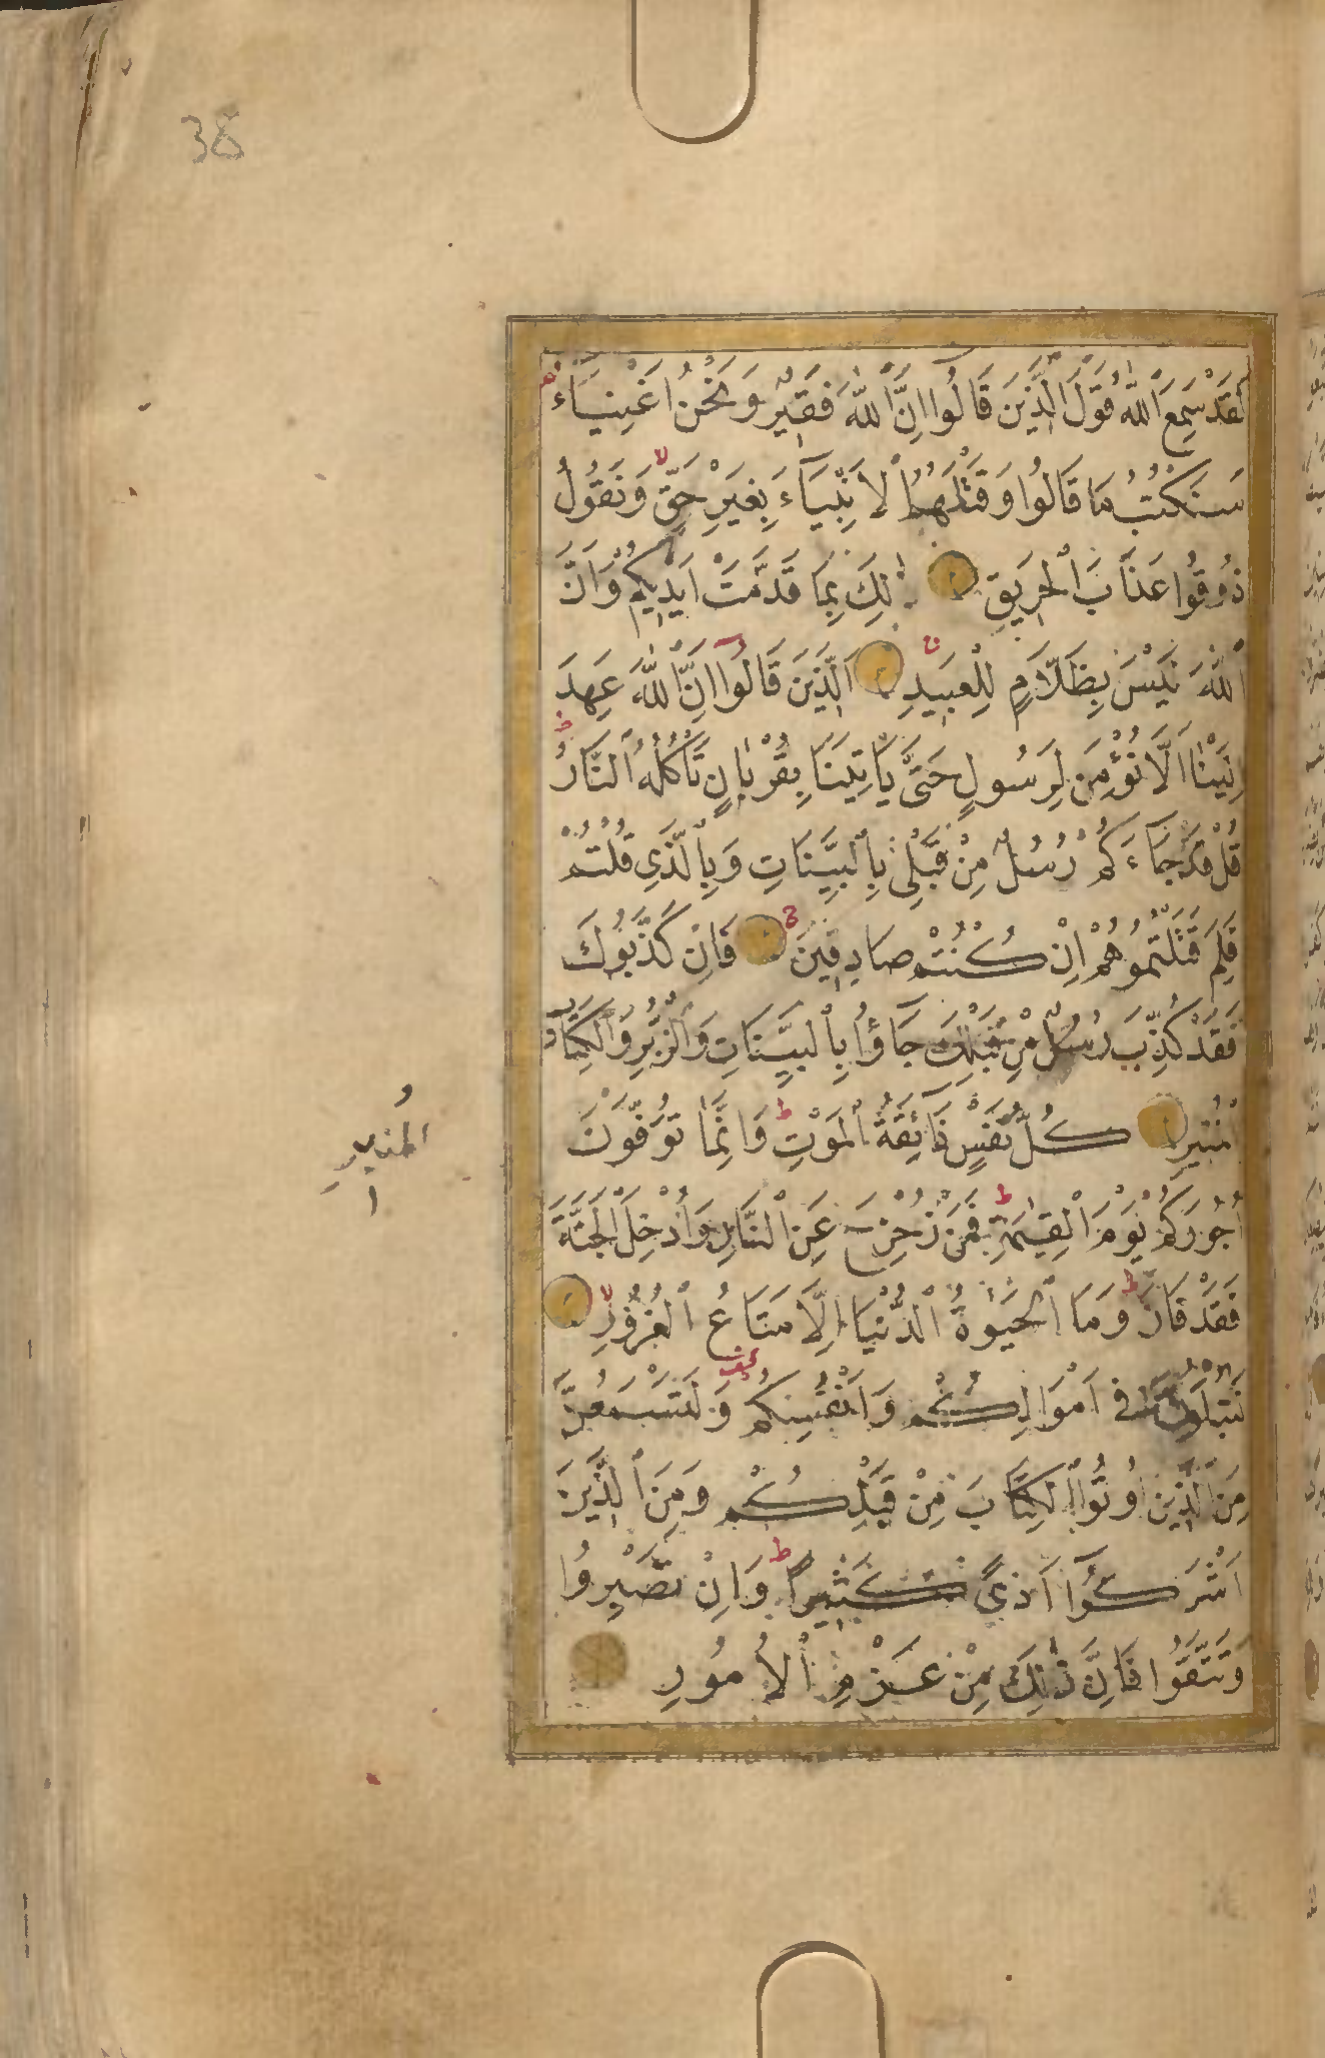 38
لَقَدْ سَمِعَ ٱللّٰهُ قَوْلَ ٱلَّذِينَ قَالُوا اِنَّ ٱللّٰهَ فَقِيرٌ وَنَحْنُ اَغْنِيَآءُ
سَنَكْتُبُ مَا قَالُوا وَقَتْلَهُمُ ٱلْاَنْبِيَآءَ بِغَيْرِ حَقٍّ وَنَقُولُ
ذُوقُوا عَذَابَ ٱلْحَرِيقِ ذٰلِكَ بِمَا قَدَّمَتْ اَيْدِيكُمْ وَاَنَّ
ٱللّٰهَ لَيْسَ بِظَلَّامٍ لِلْعَبِيدِ اَلَّذِينَ قَالُوٓا اِنَّ ٱللّٰهَ عَهِدَ
اِلَيْنَا اَلَّا نُؤْمِنَ لِرَسُولٍ حَتَّى يَاْتِيَنَا بِقُرْبَانٍ تَاْكُلُهُ ٱلنَّارُ
قُلْ قَدْ جَآءَكُمْ رُسُلٌ مِنْ قَبْلِى بِٱلْبَيِّنَاتِ وَبِٱلَّذِى قُلْتُمْ
فَلِمَ قَتَلْتُمُوهُمْ اِنْ كُنْتُمْ صَادِقِينَ فَاِنْ كَذَّبُوكَ
فَقَدْ كُذِّبَ رُسُلٌ مِنْ قَبْلِكَ جَاؤُا بِٱلْبَيِّنَاتِ وَٱلزُّبُرِ وَٱلْكِتَابِ
ٱلْمُنِيرِ كُلُّ نَفْسٍ ذَآئِقَةُ ٱلْمَوْتِ وَاِنَّمَا تُوَفَّوْنَ
اُجُورَكُمْ يَوْمَ ٱلْقِيٰمَةِ فَمَنْ زُحْزِحَ عَنِ ٱلنَّارِ وَاُدْخِلَ ٱلْجَنَّةَ
فَقَدْ فَازَ وَمَا ٱلْحَيٰوةُ ٱلدُّنْيَا اِلَّا مَتَاعُ ٱلْغُرُورِ
لَتُبْلَوُنَّ فِى اَمْوَالِكُمْ وَاَنْفُسِكُمْ وَلَتَسْمَعُنَّ
مِنَ ٱلَّذِينَ اُوتُوا ٱلْكِتَابَ مِنْ قَبْلِكُمْ وَمِنَ ٱلَّذِينَ
اَشْرَكُوٓا اَذًى كَثِيرًا وَاِنْ تَصْبِرُوا
وَتَتَّقُوا فَاِنَّ ذٰلِكَ مِنْ عَزْمِ ٱلْاُمُورِ